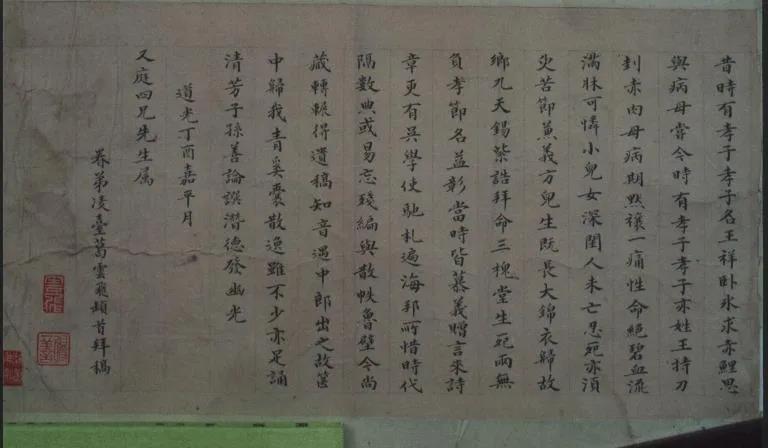 昔時有孝子孝子名王祥卧氷求赤鯉思
與病母嘗今時有孝子孝子亦姓王持刀
刲赤肉母病期默禳一痛性命絕碧血流
滿牀可憐小兒女深閨人未亡忍死亦須
臾苦節兼義方兒生既長大錦衣歸故
鄉九天錫紫誥拜命三槐堂生死兩無
負孝節名益彰當時皆慕義贈言來詩
章更有吳學使馳札遍海邦所惜時代
隔數典或易忘殘編與散帙魯壁今尚
藏轉輾得遺稿知音遇中郎出之故篋
中歸我青奚囊散逸雖不少亦足誦
清芳子孫善論譔潛德發幽光
道光丁酉嘉平月
又庭四兄先生属
眷弟凌臺葛雲飛頓首拜稿